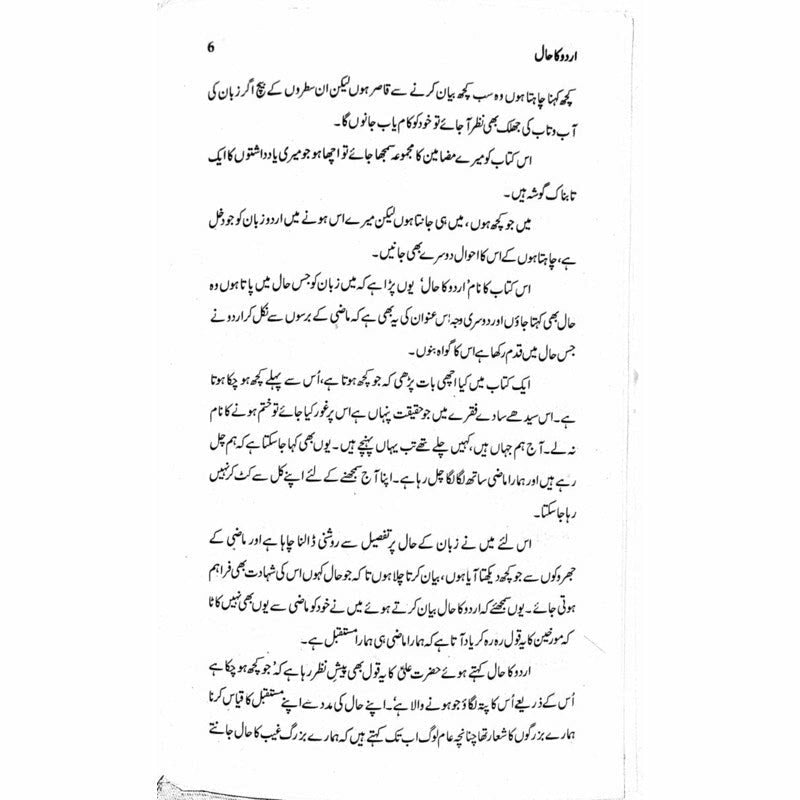 اردو کا حال
6
کچھ کہنا چاہتا ہوں وہ سب کچھ بیان کرنے سے قاصر ہوں لیکن ان سطروں کے بیچ اگر زبان کی
آب و تاب کی جھلک بھی نظر آ جائے تو خود کو کام یاب جانوں گا۔
اس کتاب کو میرے مضامین کا مجموعہ سمجھا جائے تو اچھا ہو جو میری یادداشتوں کا ایک
تابناک گوشہ ہیں۔
میں جو کچھ ہوں، میں ہی جانتا ہوں لیکن میرے اس ہونے میں اردو زبان کو جو دخل
ہے، چاہتا ہوں کے اس کا احوال دوسرے بھی جانیں۔
اس کتاب کا نام ’اردو کا حال‘ یوں پڑا ہے کہ میں زبان کو جس حال میں پاتا ہوں وہ
حال بھی کہتا جاؤں اور دوسری وجہ اس عنوان کی یہ بھی ہے کہ ماضی کے برسوں سے نکل کر اردو نے
جس حال میں قدم رکھا ہے اس کا گواہ بنوں۔
ایک کتاب میں کیا اچھی بات پڑھی کہ جو کچھ ہوتا ہے، اُس سے پہلے کچھ ہو چکا ہوتا
ہے۔ اس سیدھے سادے فقرے میں جو حقیقت پنہاں ہے اس پر غور کیا جائے تو ختم ہونے کا نام
نہ لے۔ آج ہم جہاں ہیں، کہیں چلے تھے تب یہاں پہنچے ہیں۔ یوں بھی کہا جا سکتا ہے کہ ہم چل
رہے ہیں اور ہمارا ماضی ساتھ لگا لگا چل رہا ہے۔ اپنا آج سمجھنے کے لئے اپنے کل سے کٹ کر نہیں
رہا جا سکتا۔
اس لئے میں نے زبان کے حال پر تفصیل سے روشنی ڈالنا چاہا ہے اور ماضی کے
جھروکوں سے جو کچھ دیکھتا آیا ہوں، بیان کرتا چلا ہوں تا کہ جو حال کہوں اس کی شہادت بھی فراہم
ہوتی جائے۔ یوں سمجھئے کہ اردو کا حال بیان کرتے ہوئے میں نے خود کو ماضی سے یوں بھی نہیں کاٹا
کہ مورخین کا یہ قول رہ رہ کر یاد آتا ہے کہ ہمارا ماضی ہی ہمارا مستقبل ہے۔
اردو کا حال کہتے ہوئے حضرت علیؓ کا یہ قول بھی پیشِ نظر رہا ہے کہ ’جو کچھ ہو چکا ہے
اُس کے ذریعے اُس کا پتہ لگاؤ جو ہونے والا ہے‘۔ اپنے حال کی مدد سے اپنے مستقبل کا قیاس کرنا
ہمارے بزرگوں کا شعار تھا چنانچہ عام لوگ اب تک کہتے ہیں کہ ہمارے بزرگ غیب کا حال جانتے